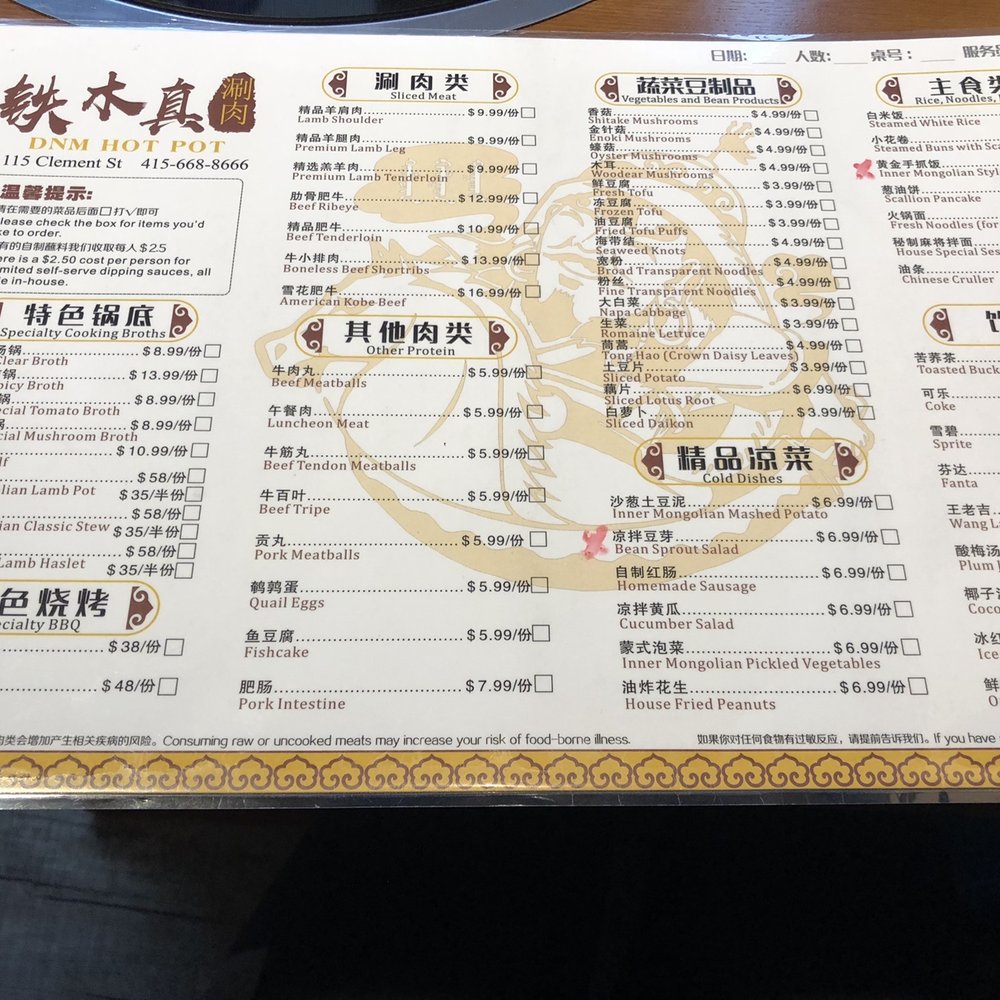 日期: 人数: 桌号: 服务
铁木真
涮肉
DNM HOT POT
115 Clement St 415-668-8666
温馨提示:
请在需要的菜品后面□打√即可
please check the box for items you'd
to order.
有的自制蘸料我们收取每人 $2.5
here is a $2.50 cost per person for
self-serve dipping sauces, all
in-house.
特色锅底
Specialty Cooking Broths
汤锅 $8.99/份
Clear Broth
锅 $13.99/份
Spicy Broth
锅 $8.99/份
Special Tomato Broth
锅 $8.99/份
Mushroom Broth
$10.99/份
$58/份
Lamb Pot $35/半份
$58/份
Classic Stew $35/半份
$58/份
Lamb Haslet $35/半份
色烧烤
Specialty BBQ
$38/份
$48/份
涮肉类
Sliced Meat
精品羊肩肉 $9.99/份
Lamb Shoulder
精品羊腿肉 $9.99/份
Premium Lamb Leg
精选羔羊肉 $9.99/份
Premium Lamb Tenderloin
肋骨肥牛 $12.99/份
Beef Ribeye
精品肥牛 $10.99/份
Beef Tenderloin
牛小排肉 $13.99/份
Boneless Beef Shortribs
雪花肥牛 $16.99/份
American Kobe Beef
其他肉类
Other Protein
牛肉丸 $5.99/份
Beef Meatballs
午餐肉 $5.99/份
Luncheon Meat
牛筋丸 $5.99/份
Beef Tendon Meatballs
牛百叶 $5.99/份
Beef Tripe
贡丸 $5.99/份
Pork Meatballs
鹌鹑蛋 $5.99/份
Quail Eggs
鱼豆腐 $5.99/份
Fishcake
肥肠 $7.99/份
Pork Intestine
蔬菜豆制品
Vegetables and Bean Products
香菇 $4.99/份
Shitake Mushrooms
金针菇 $4.99/份
Enoki Mushrooms
蠔菇 $4.99/份
Oyster Mushrooms
木耳 $4.99/份
Woodear Mushrooms
鲜豆腐 $3.99/份
Fresh Tofu
冻豆腐 $3.99/份
Frozen Tofu
油豆腐 $3.99/份
Fried Tofu Puffs
海带结 $4.99/份
Seaweed Knots
宽粉 $4.99/份
Broad Transparent Noodles
粉丝 $4.99/份
Fine Transparent Noodles
大白菜 $3.99/份
Napa Cabbage
生菜 $3.99/份
Romaine Lettuce
茼蒿 $4.99/份
Tong Hao (Crown Daisy Leaves)
土豆片 $3.99/份
Sliced Potato
藕片 $6.99/份
Sliced Lotus Root
白萝卜 $3.99/份
Sliced Daikon
精品凉菜
Cold Dishes
沙葱土豆泥 $6.99/份
Inner Mongolian Mashed Potato
凉拌豆芽 $6.99/份
Bean Sprout Salad
自制红肠 $6.99/份
Homemade Sausage
凉拌黄瓜 $6.99/份
Cucumber Salad
蒙式泡菜 $6.99/份
Inner Mongolian Pickled Vegetables
油炸花生 $6.99/份
House Fried Peanuts
主食类
Rice, Noodles,
白米饭
Steamed White Rice
小花卷
Steamed Buns with
黄金手抓饭
Inner Mongolian Style
葱油饼
Scallion Pancake
火锅面
Fresh Noodles (for
秘制麻将拌面
House Special
油条
Chinese Cruller
苦荞茶
Toasted
可乐
Coke
雪碧
Sprite
芬达
Fanta
王老吉
Wang
酸梅汤
Plum
椰子
冰红
鲜
肉类会增加产生相关疾病的风险。Consuming raw or uncooked meats may increase your risk of food-borne illness. 如果你对任何食物有过敏反应，请提前告诉我们。If you have